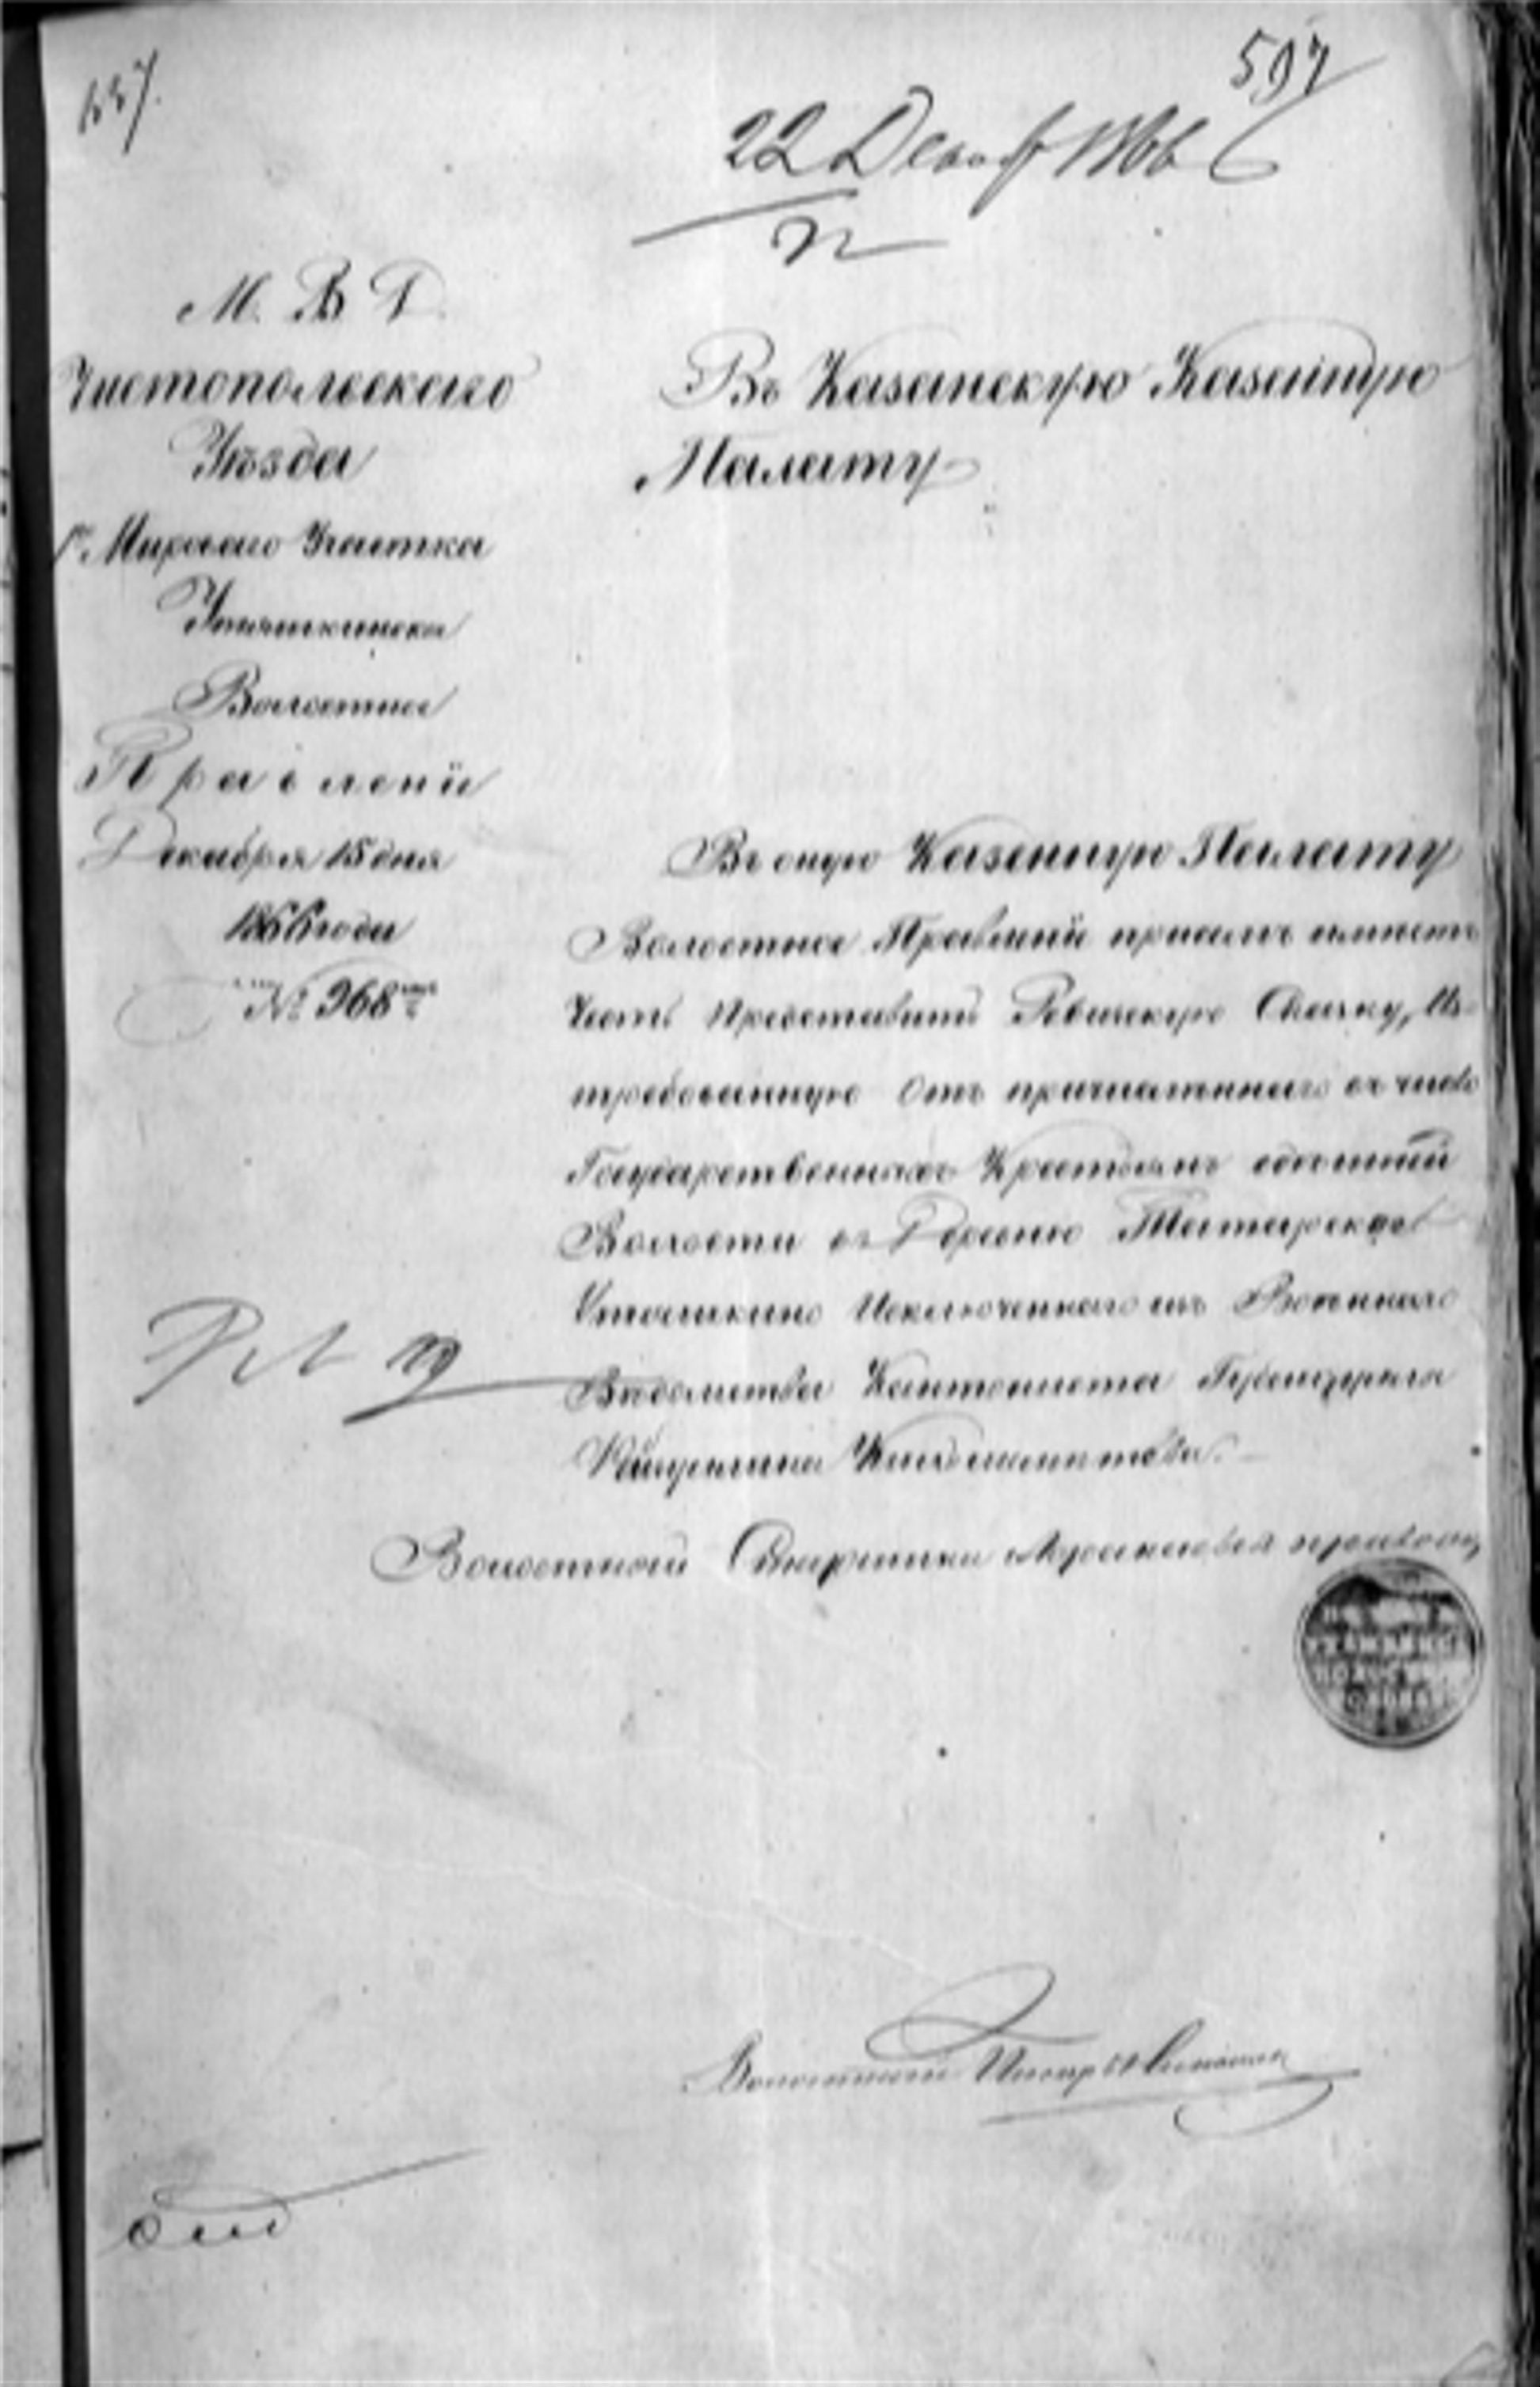 597
22 Декаб 1866
М. В. Д.
Чистопольскаго
Уѣзда
1го Мироваго Участка
Утяшкинска
Волостное
Правленіе
Декабря 15 дня
1866 года
№ 968
Въ Казанскую Казенную
Палату
Въ оную Казенную Палату
Волостное Правленіе при семъ имѣетъ
Честь Представить Ревизскую Сказку, Ис-
требованную Отъ причисленнаго въ число
Государственныхъ Крестьянъ здешней
Волости въ Деревню Татарское
Утяшкино Исключеннаго изъ Военнаго
Вѣдомства Кантониста
Волостной Старшина
Волостной Писарь